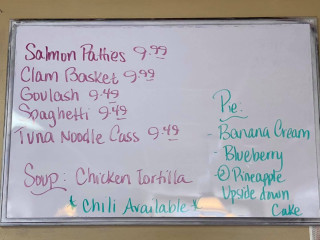 Salmon Patties 9.99
Clam Basket 9.99
Goulash 9.49
Spaghetti 9.49
Tuna Noodle Cass 9.49
Soup: Chicken Tortilla
* Chili Available *
Pie:
- Banana Cream
- Blueberry
- ② Pineapple
Upside down
Cake